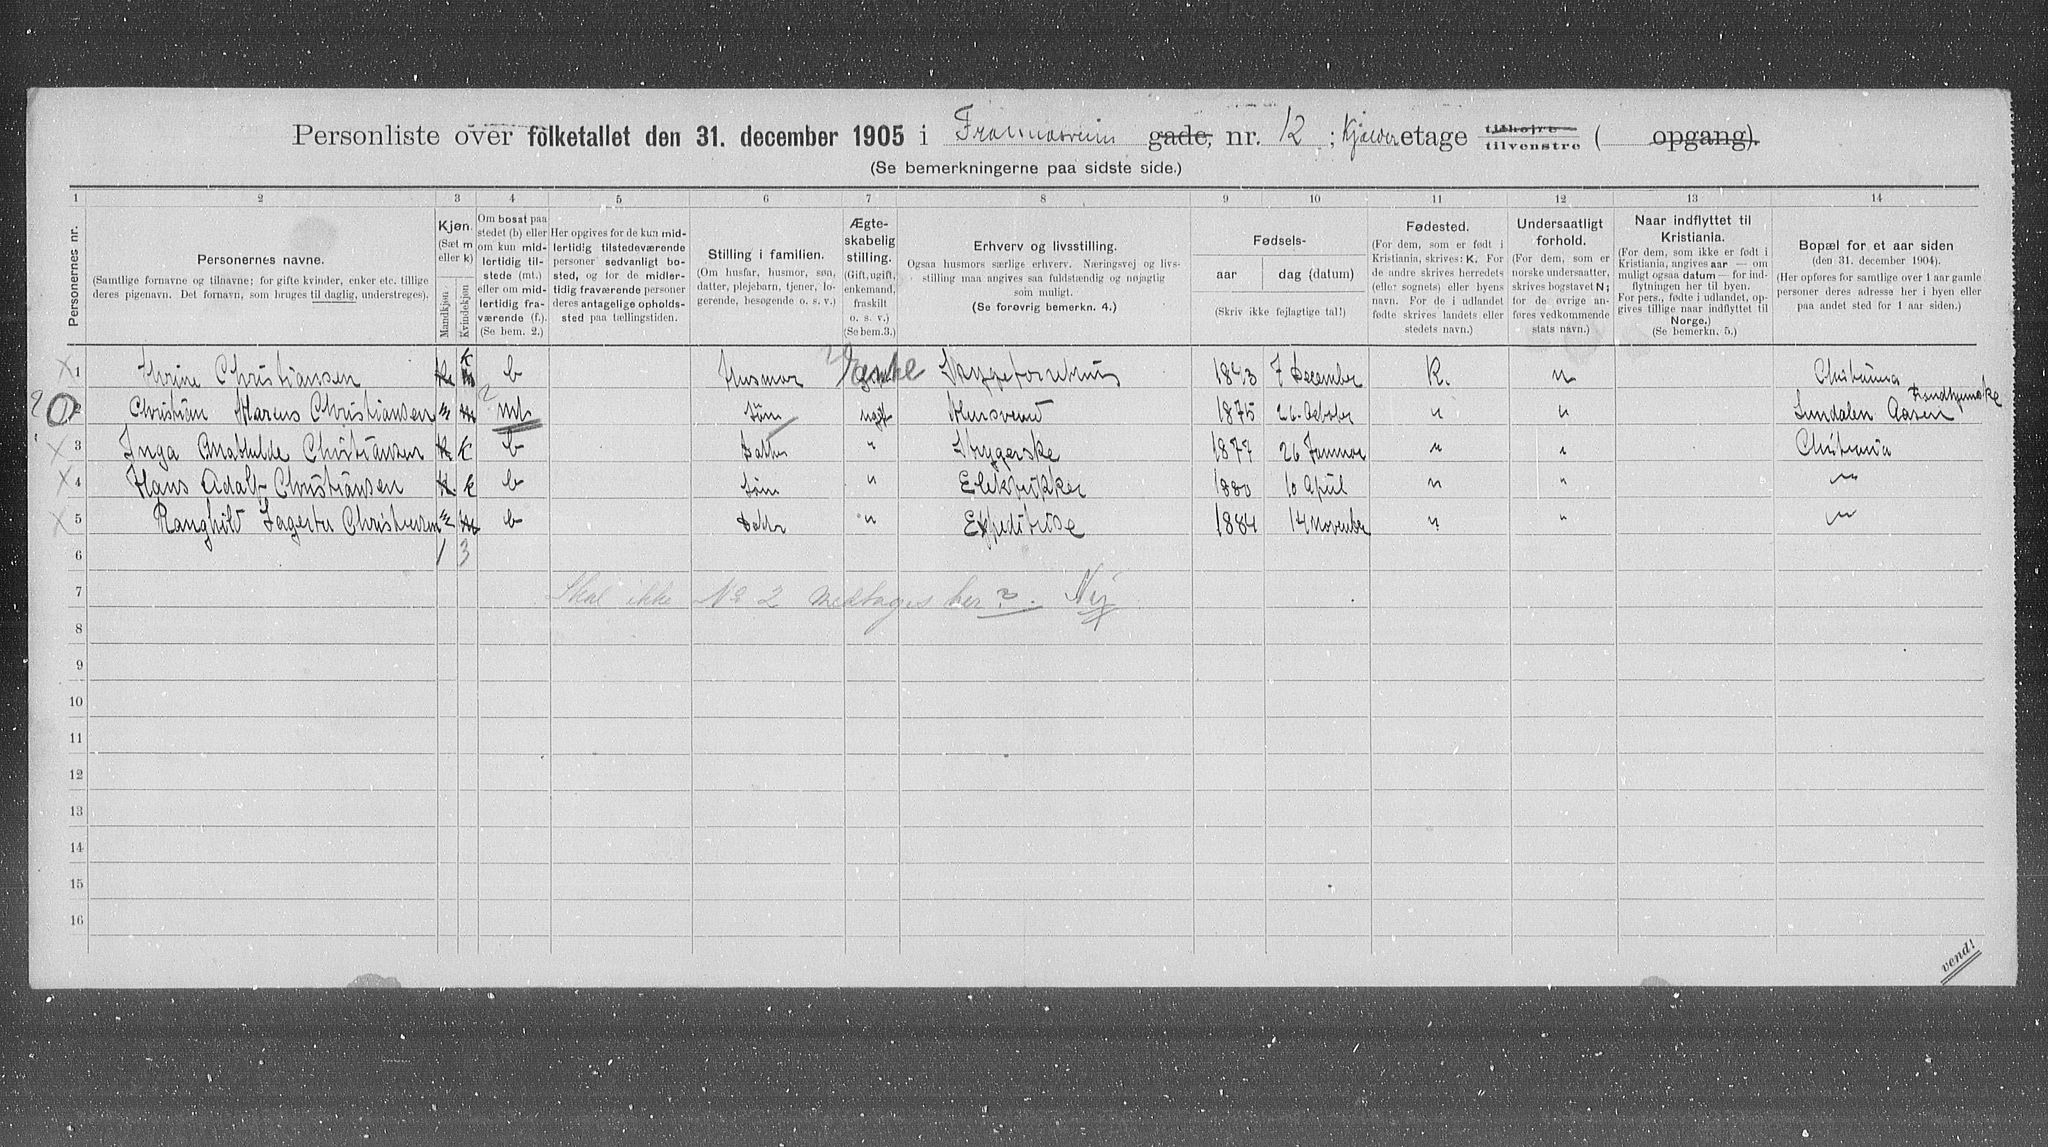 Personliste over folketallet den 31. december 1905 i Frammesveien gade, nr. 12 ; Kjælder etage tilhøjre ( opgang).
tilvenstre
(Se bemerkningerne paa sidste side.)
1 2 3 4 5 6 7 8 9 10 11 12 13 14
Personernes nr.
Personernes navne.
(Samtlige fornavne og tilnavne; for gifte kvinder, enker etc. tillige
deres pigenavn. Det fornavn, som bruges til daglig, understreges).
Kjøn.
(Sæt m
eller k)
Mandkjøn.
Kvindekjøn
Om bosat paa
stedet (b) eller
om kun mid-
lertidig til-
stede (mt.)
eller om mid-
lertidig fra-
værende (f.).
(Se bem. 2.)
Her opgives for de kun mid-
lertidig tilstedeværende
personer sedvanligt bo-
sted, og for de midler-
tidig fraværende personer
deres antagelige opholds-
sted paa tællingstiden.
Stilling i familien.
(Om husfar, husmor, søn,
datter, plejebarn, tjener, lo-
gerende, besøgende o. s. v.)
Ægte-
skabelig
stilling.
(Gift, ugift,
enkemand,
fraskilt
o. s. v.)
(Se bem.3.)
Erhverv og livsstilling.
Ogsaa husmors særlige erhverv. Næringsvej og livs-
stilling maa angives saa fuldstændig og nøjagtig
som muligt.
(Se forøvrig bemerkn. 4.)
Fødsels-
aar
dag (datum)
(Skriv ikke fejlagtige tal!)
Fødested.
(For dem, som er født i
Kristiania, skrives: K. For
de andre skrives herredets
(eller sognets) eller byens
navn. For de i udlandet
fødte skrives landets eller
stedets navn.)
Undersaatligt
forhold.
(For dem, som er
norske undersaatter,
skrives bogstavet N;
for de øvrige an-
føres vedkommende
stats navn.)
Naar indflyttet til
Kristiania.
(For dem, som ikke er født i
Kristiania, angives aar — om
muligt ogsaa datum — for ind-
flytningen her til byen.
For pers., fødte i udlandet, op-
gives tillige naar indflyttet til
Norge.)
(Se bemerkn. 5.)
Bopæl for et aar siden
(den 31. december 1904).
(Her opføres for samtlige over 1 aar gamle
personer deres adresse her i byen eller
paa andet sted for 1 aar siden.)
1 Christiansen k b Husmor Enke 1843 7 December K. n Christiania
2 Christian Marius Christiansen m mt Søn ugift 1875 26. October " " Sundalen Aasen
3 Inga Mathilde Christiansen k b Datter " Strygerske 1877 26 Januar " " Christiania
4 Hans Adolf Christiansen k b Søn " 1880 10 April " " "
5 Ranghild Christiansen m b Datter " Expeditrise 1884 14 November " " "
6 1 3
7 Skal ikke No 2 medtages her? Nej
8
9
10
11
12
13
14
15
16
vend!